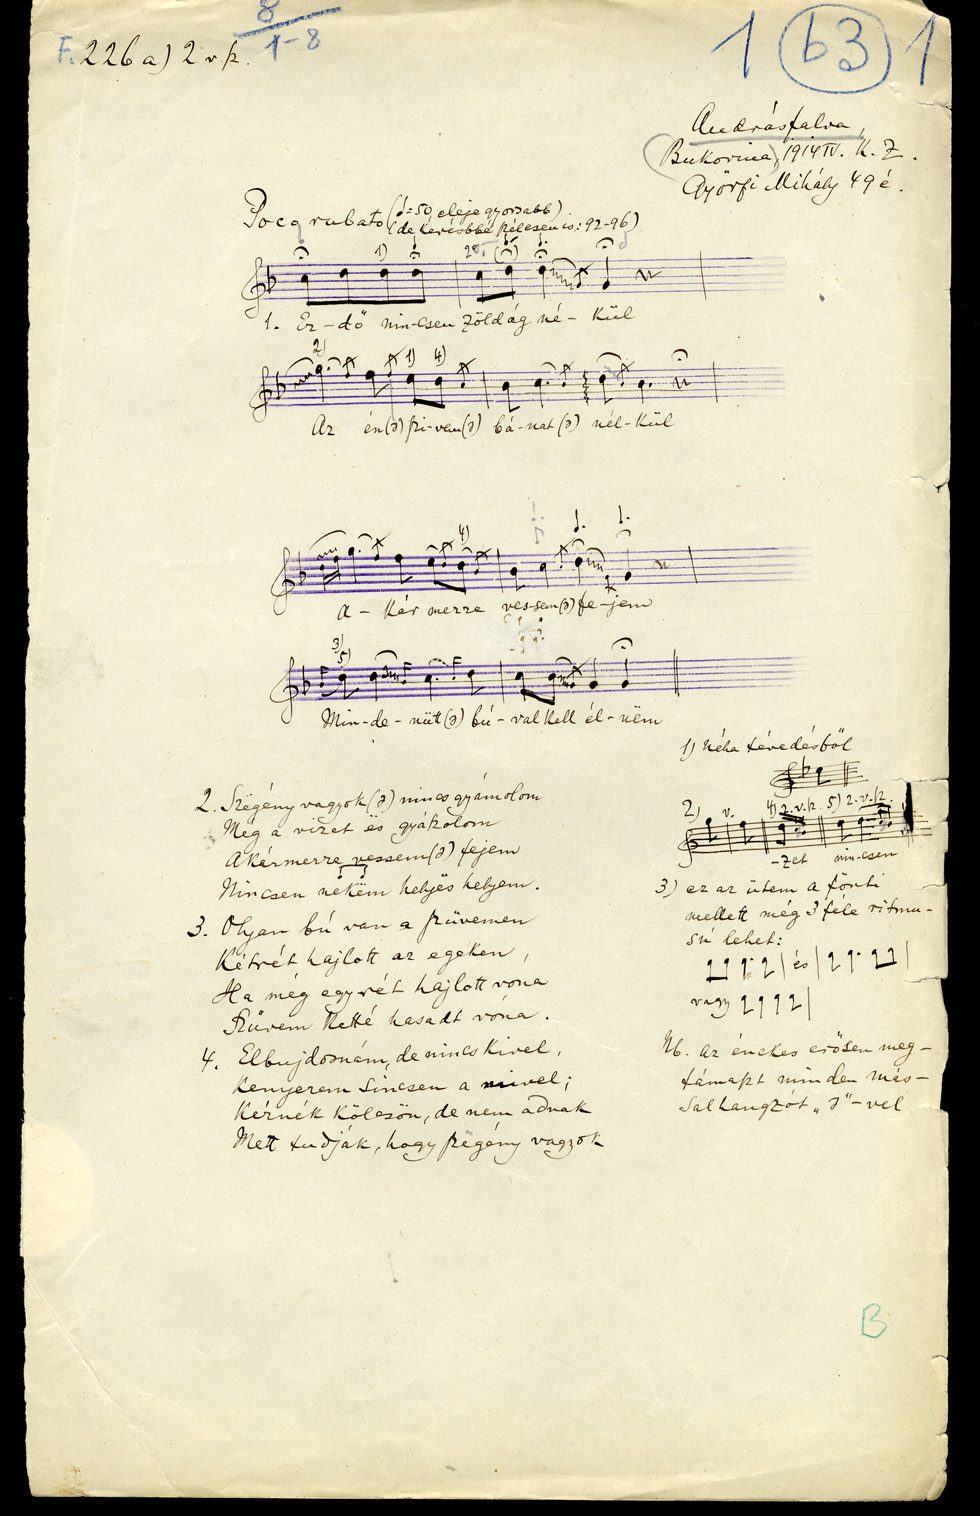 8
1-8
F. 226 a) 2 v sz.
1 63 1
Andrásfalva,
(Bukovina), 1914 IV. K. Z.
Győrfi Mihály 49 é.
Poco rubato (♩=50, eleje gyorsabb)
1) 2)
1. Er-dő nin-csen zöld ág né-kül
2) 1) 4)
Az én(ə) szi-vem(ə) bá-nat(ə) nél-kül
4)
A-kár merre ves-sem(ə) fe-jem
3) 5)
Min-de-nütt(ə) bú-val kell él-nëm
1) Néha tévedésből
2) v. 4) 2. v. sz. 5) 2. v. sz.
-zet nin-csen
3) ez az ütem a fönti
mellett még 3 féle ritmu-
sú lehet:
és
vagy
Nb. Az énekes erősen meg-
támaszt minden más-
salhangzót „ə"-vel
2. Szëgény vagyok(ə) nincs gyámolom
Még a vizet ës gyászolom
Akármerre vessem(ə) fejem
Nincsen nekëm helyës helyem.
3. Olyan bú van a szüvemen
Kétrét hajlott az egeken,
Ha még egyrét hajlott vona
Szüvem ketté hasadt vóna.
4. Elbujdosnám, de nincs kivel,
kenyerem sincsen a mivel;
Kérnék kölcsön, de nem adnak
Mett tudják, hogy szëgény vagyok
B